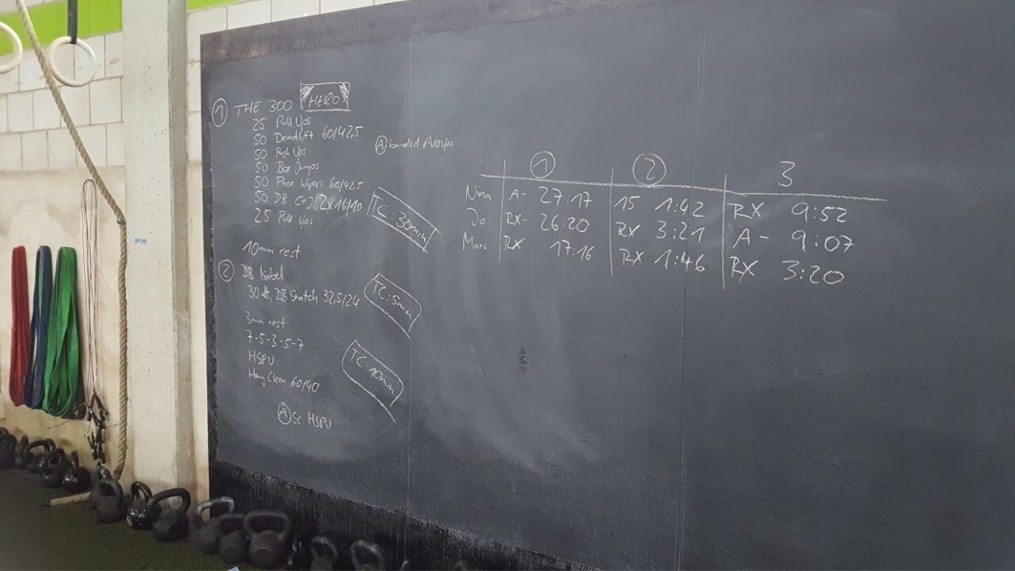 ① THE 300 HERO
25 Pull Ups
50 Deadlift 60/42,5
50 Push Ups
50 Box Jumps
50 Floor Wipers 60/42,5
50 DB C+J 2x16/10
25 Pull Ups
Ⓐ banded Pull Ups
TC: 30min
10min rest
② DB Isabel
30 DB Snatch 32,5/24
TC: 5min
3min rest
7-5-3-5-7
HSPU
Hang Clean 60/40
TC: 10min
Ⓐ Sc HSPU
① ② 3
Nina A- 27:17 15 1:42 RX 9:52
Jo RX- 26:20 RX 3:21 A- 9:07
Marc RX 17:16 RX 1:46 RX 3:20